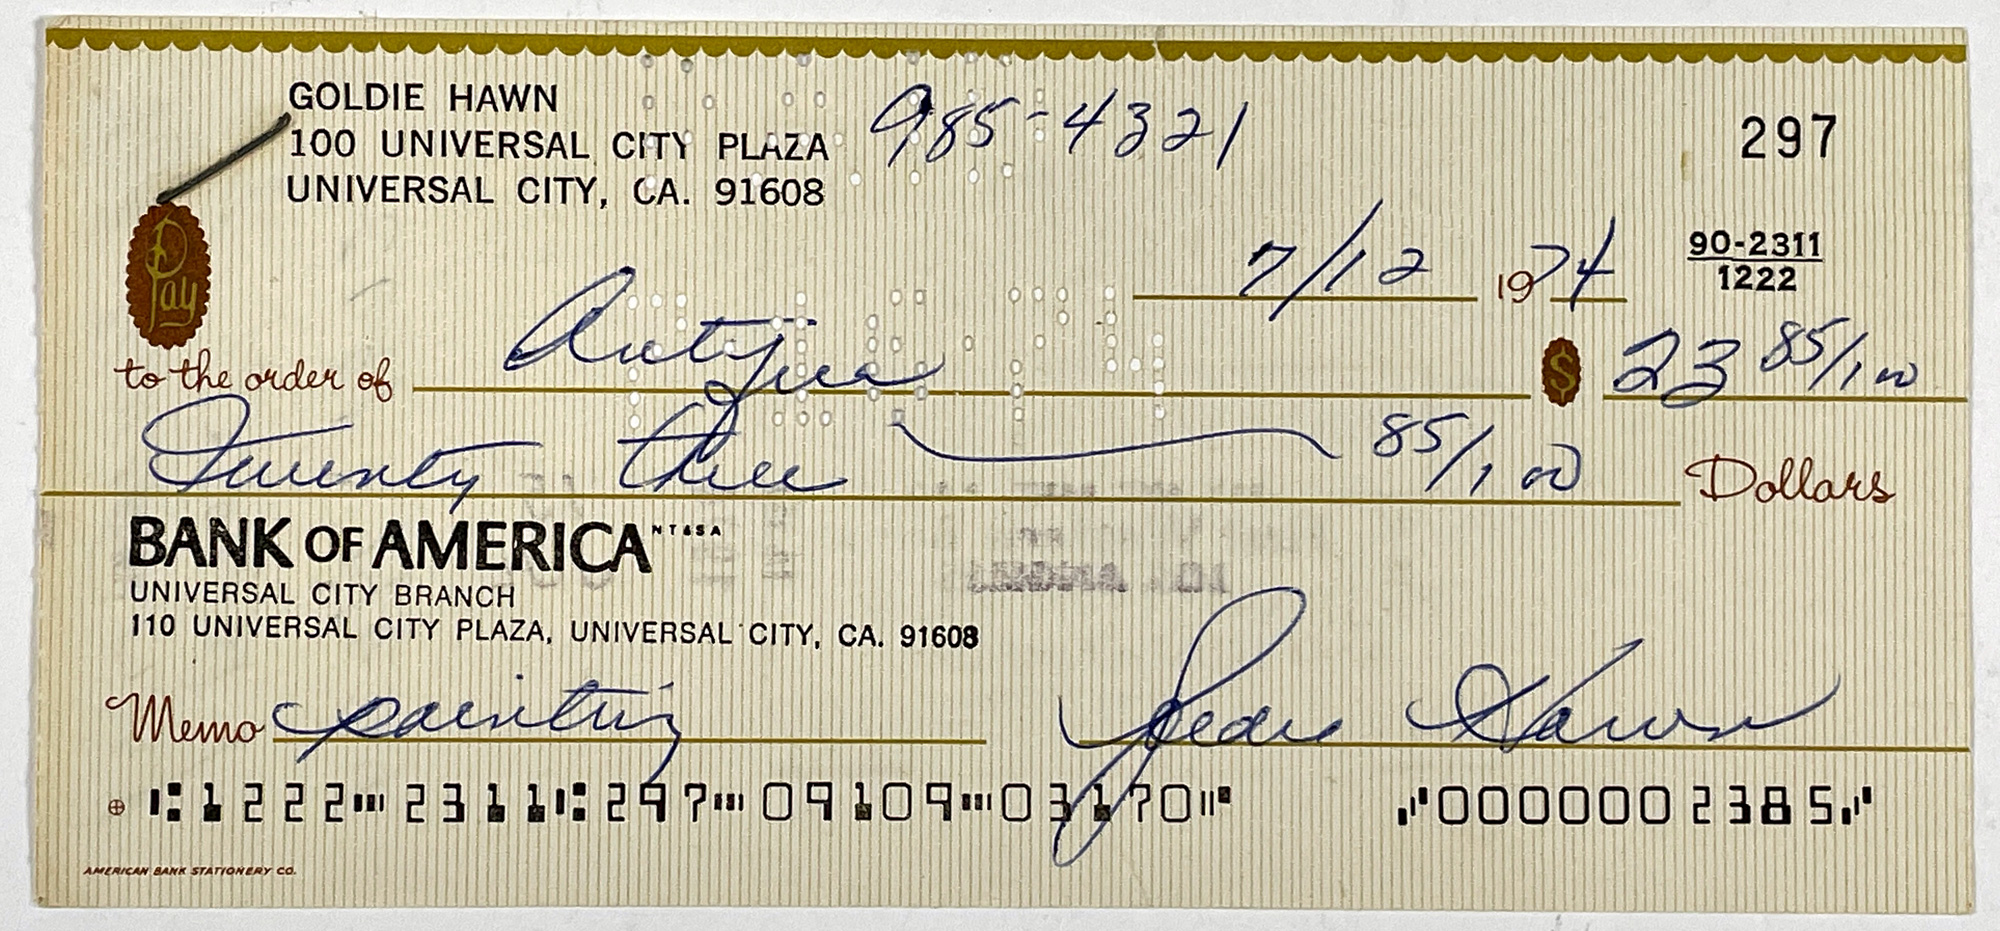 GOLDIE HAWN
100 UNIVERSAL CITY PLAZA 985-4321
UNIVERSAL CITY, CA. 91608
297
90-2311
1222
7/12 1974
Pay
to the order of Antigua $ 23 85/100
Twenty three 85/100 Dollars
BANK OF AMERICA NT&SA
UNIVERSAL CITY BRANCH
110 UNIVERSAL CITY PLAZA, UNIVERSAL CITY, CA. 91608
Memo painting Goldie Hawn
⑆1222⑉2311⑆297⑉09109⑉03170⑈ ⑇0000002385⑇
AMERICAN BANK STATIONERY CO.